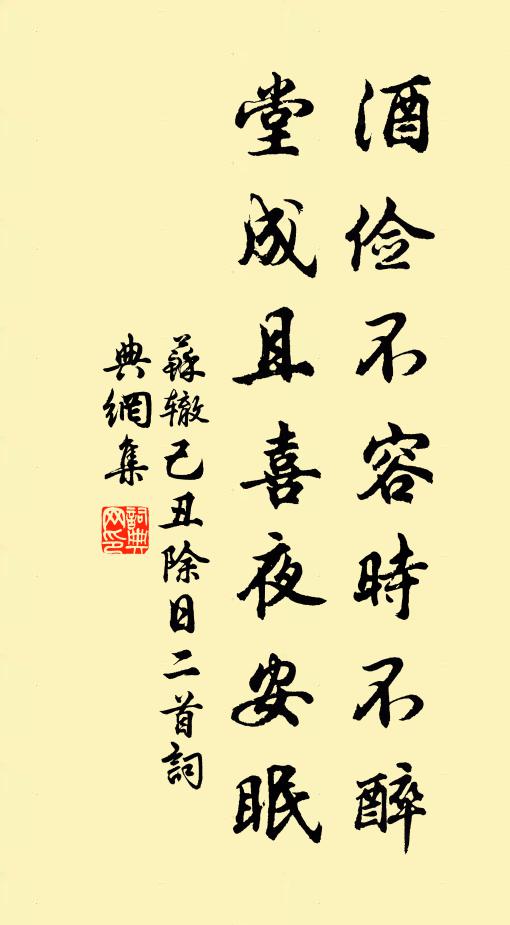 酒俭不容時不醉
堂成且喜夜安眠
蘇辙己丑除日二首詞
典網集
詞典
网印